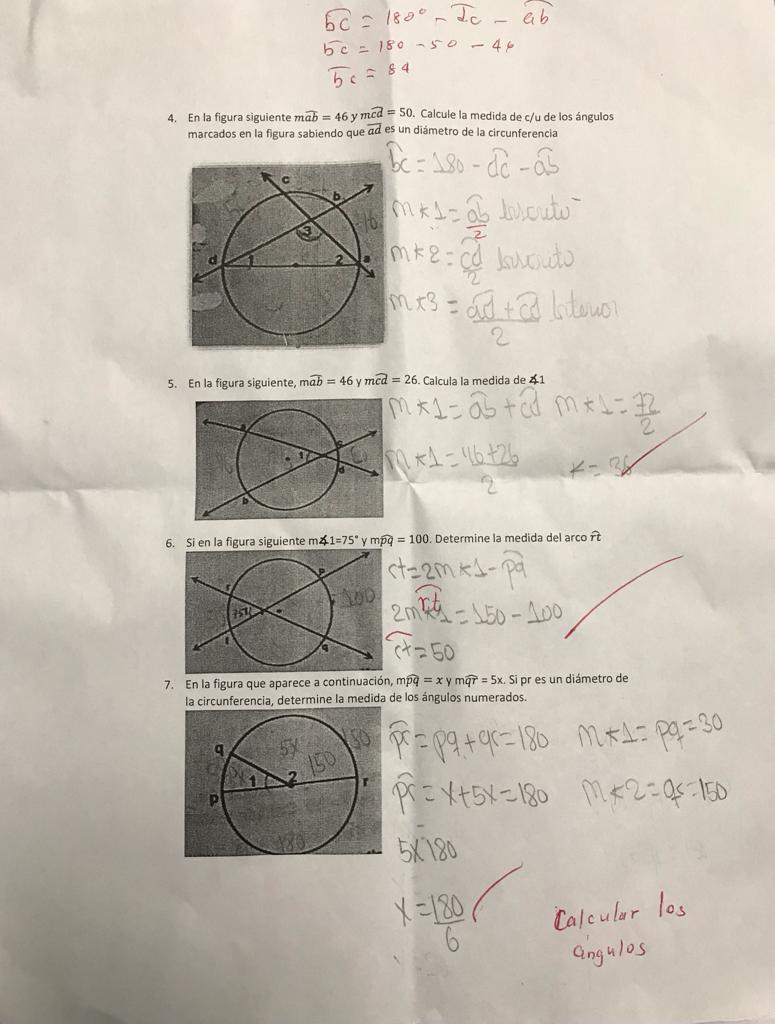 b͡c = 180° - d͡c - a͡b
b͡c = 180 - 50 - 46
b͡c = 84
4. En la figura siguiente ma͡b = 46 y mc͡d = 50. Calcule la medida de c/u de los ángulos
marcados en la figura sabiendo que a͞d es un diámetro de la circunferencia
b͡c = 180 - d͡c - a͡b
m∡1 = a͡b/2 Inscrito
m∡2 = c͡d/2 Inscrito
m∡3 = a͡d + c͡d Interior
2
c
b
3
d 1 2 a
5. En la figura siguiente, ma͡b = 46 y mc͡d = 26. Calcula la medida de ∡1
m∡1 = a͡b + c͡d m∡1 = 72/2
m∡1 = 46+26 ∡ = 36
2
a
c
1
d
b
6. Si en la figura siguiente m∡1=75° y mp͡q = 100. Determine la medida del arco r͡t
rt = 2m∡1 - p͡q
r͡t
2m∡1 = 150 - 100
r͡t = 50
p
r
100
75°
t
q
7. En la figura que aparece a continuación, mp͡q = x y mq͡r = 5x. Si pr es un diámetro de
la circunferencia, determine la medida de los ángulos numerados.
p͡r = pq + qr = 180 m∡1 = pq = 30
p͡r = x + 5x = 180 m∡2 = qr = 150
5x 180
x = 180
6
q
5x
150
1 2 r
p
180
Calcular los
ángulos